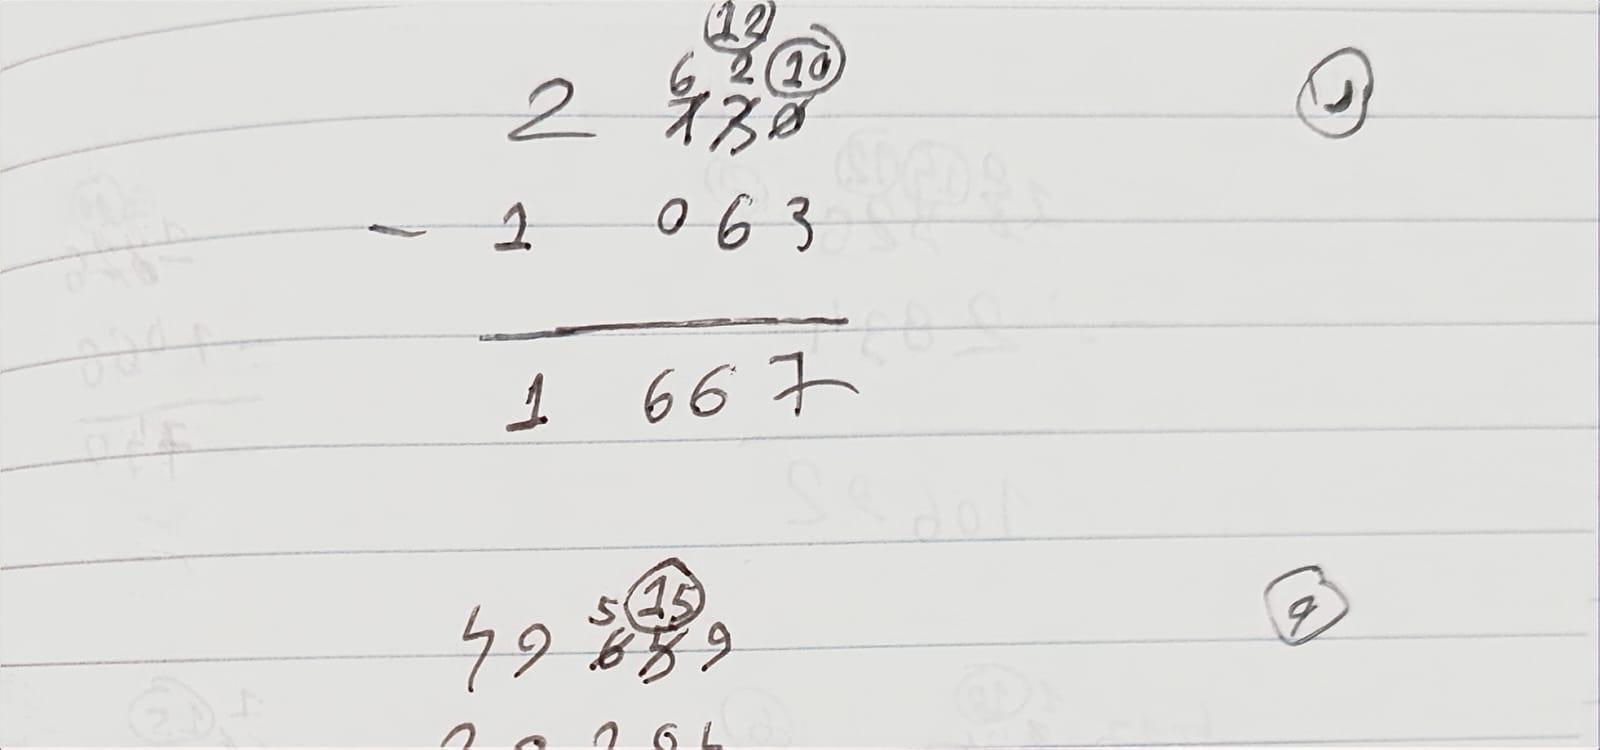 12
6 2 10
2 730
- 1 063
1 667
5 15
49 659